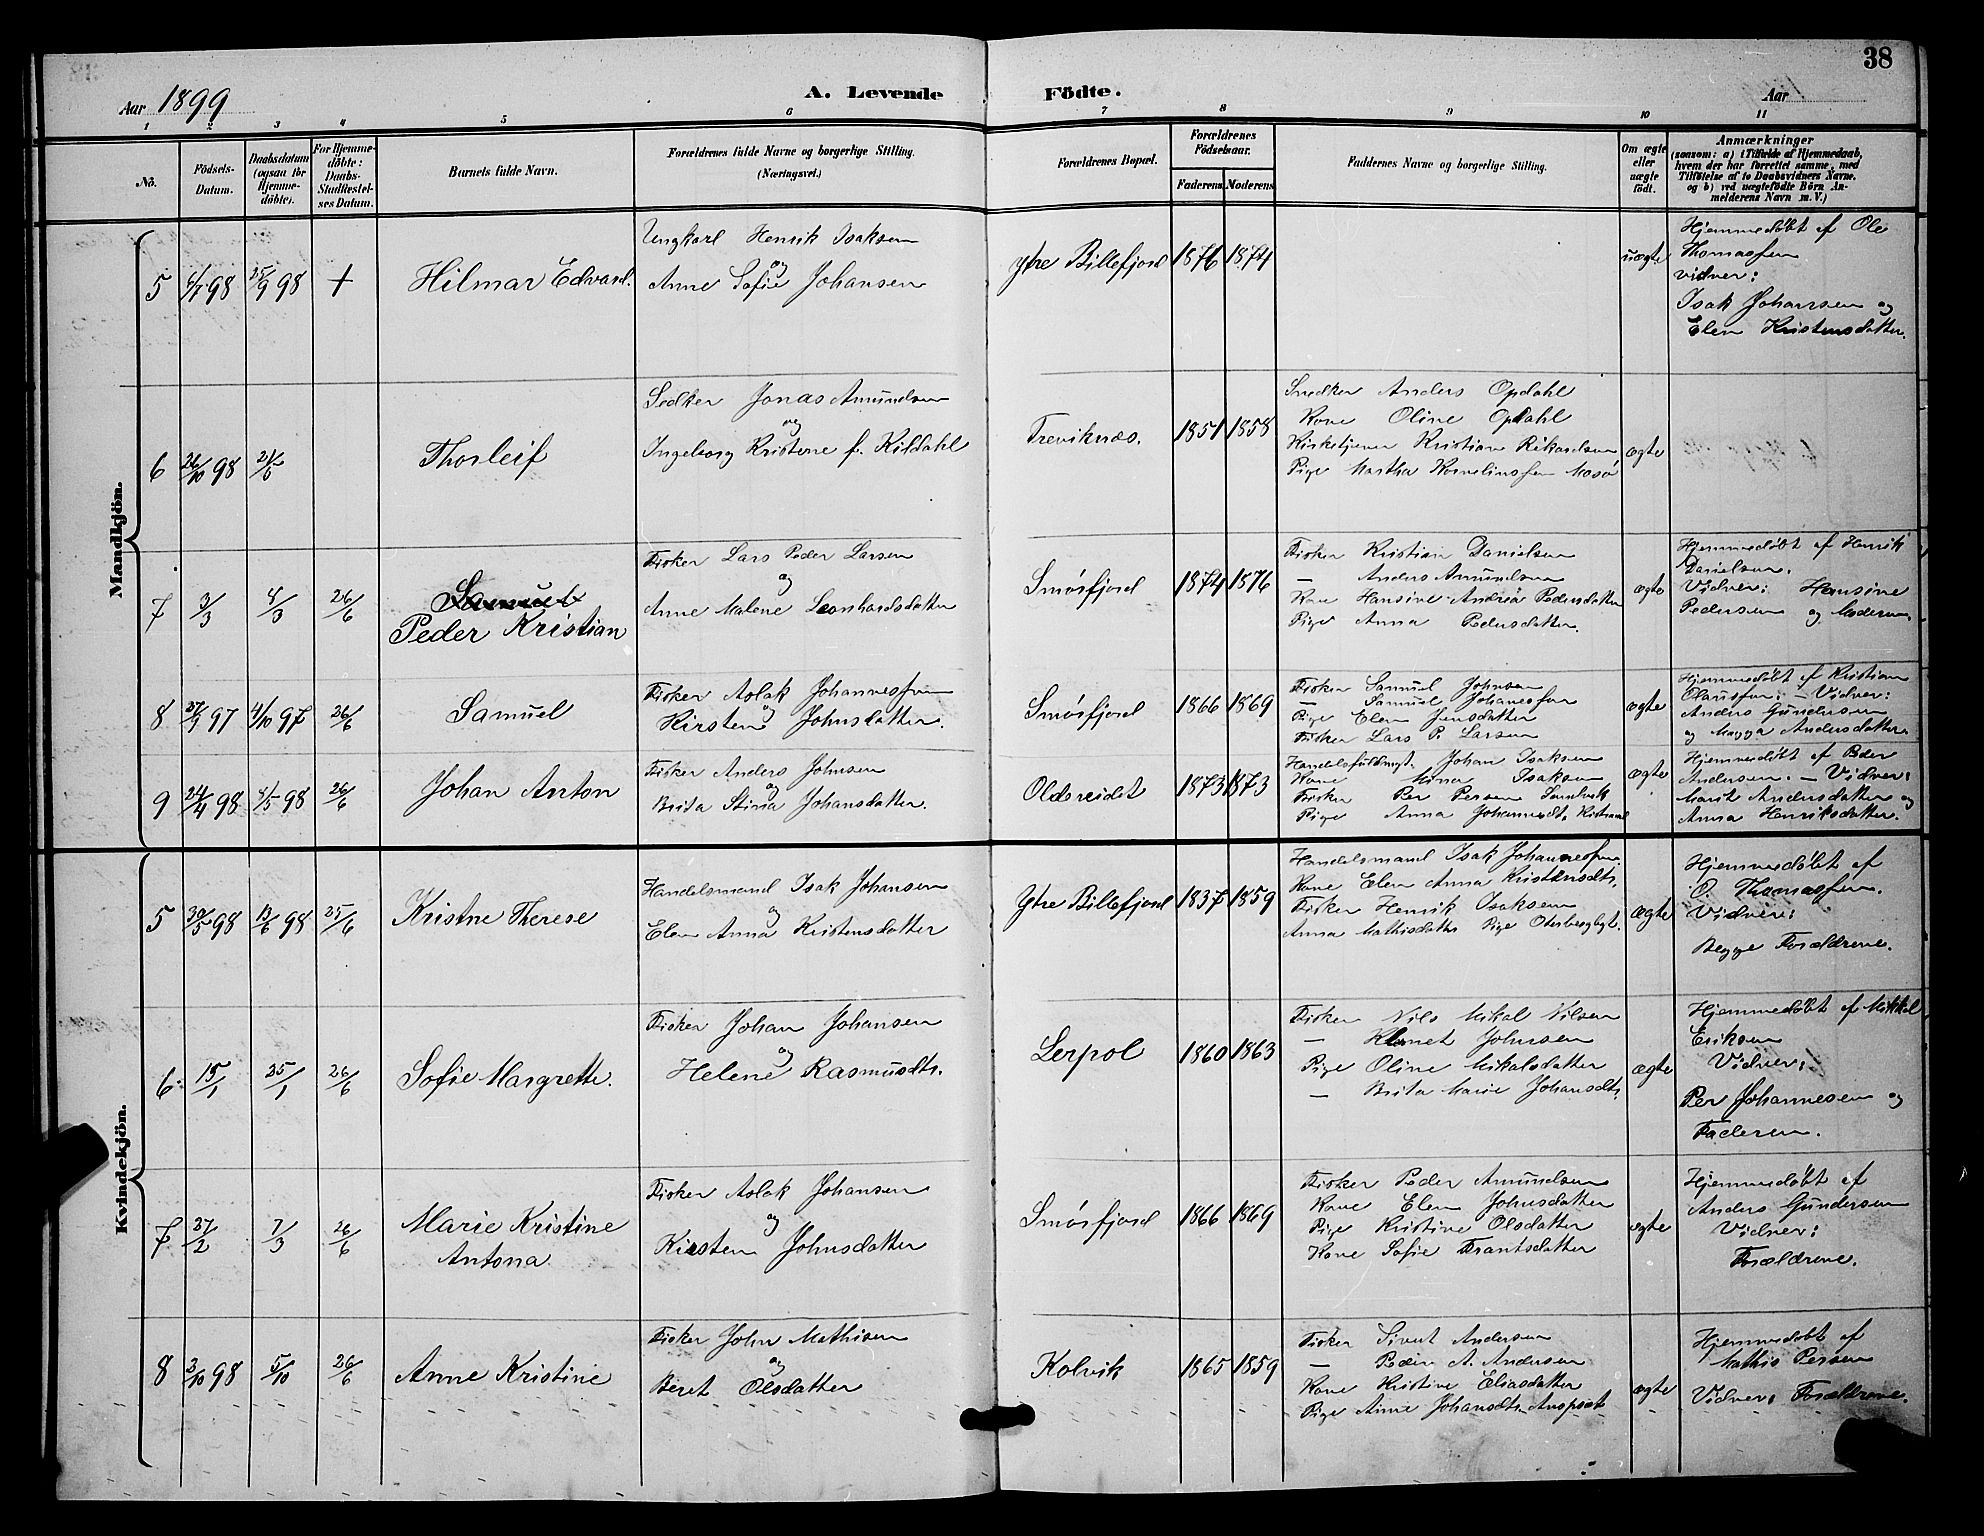 38
Aar 1899
A. Levende Födte.
Aar
1 2 3 4 5 6 7 8 9 10 11
No.
Födsels-Datum.
Daabsdatum (ogsaa for Hjemme-döbte).
For Hjemme-döbte: Daabs-Stadfæstel-ses Datum.
Barnets fulde Navn.
Forældrenes fulde Navne og borgerlige Stilling.
(Næringsvei.)
Forældrenes Bopæl.
Forældrenes Födselsaar.
Faderens. Moderens.
Faddernes Navne og borgerlige Stilling.
Om ægte eller uægte födt.
Anmærkninger
(saasom: a) i Tilfælde af Hjemmedaab,
hvem der har forrettet samme, med
Tilföielse af to Daabsvidners Navne,
og b) ved uægtefödte Börn An-
melderens Navn m. V.)
Mandkjön.
5 98 25/9 98 +
Hilmar Edvard.
Ungkarl Henrik Isaksen
og
Anne Sofie Johansen
Ytre Billefjord 1876 1874
uægte
Hjemmedøbt af Ole
Thomassen
vidner:
Isak Johansen og
Elen Kristensdatter.
6 26/10 98
Thorleif
Sedker Jonas Amundsen
og
Ingeborg Kristene f. Kildahl
Treviknæs. 1851 1858
Snedker Anders Opdahl
Kone Oline Opdahl
Kirketjener Kristian Rikardsen
Pige Martha Kornelinssen Masø
ægte
7 3/3 4/3 26/6
Samuel
Peder Kristian
Fisker Lars Peder Larsen
og
Anne Malene Leonhardsdatter
Smørfjord 1874 1876
Fisker Kristian Danielsen
— Anders Amundsen
Kone Hansine Andrea Pedersdatter
Pige Anna Pedersdatter.
ægte
Hjemmedøbt af Henrik
Danielsen.
Vidner: Hansine
Pedersen og Moderen.
8 27/9 97 4/10 97 26/6
Samuel
Fisker Aslak Johannessen
og
Kirsten Johnsdatter.
Smørfjord 1866 1869
Fisker Samuel Johnsen
— Samuel Johanessen
Pige Elen Jensdatter
Fisker Lars P. Larsen
ægte
Hjemmedøbt af Kristian
Olaussen: — Vidner:
Anders Gundersen
og Magga Andersdatter.
9 24/4 98 /5 98 26/6
Johan Anton
Fisker Anders Johnsen
og
Brita Stina Johansdatter.
Oldereidet 1873 1873
Handelsfuldmgt. Johan Isaksen
Kone Mina Isaksen
Fisker Per Persen Sandvik
Pige Anna Johannesdt.
ægte
Hjemmedøbt af Peder
Andersen. — Vidner:
Marit Andersdatter og
Anna Henriksdatter.
Kvindekjön.
5 30/5 98 13/6 98 25/6
Kristne Therese
Handelsmand Isak Johansen
og
Elen Anna Kristensdatter
Ytre Billefjord 1837 1859
Handelsmand Isak Johannessen.
Kone Elen Anna Kristensdtr.
Fisker Henrik Isaksen
Anna Mathisdatter Pige
ægte
Hjemmedøbt af
O. Thomassen.
Vidner:
Begge Forældrene.
6: 15/1 25/1 26/6
Sofie Margrette.
Fisker Johan Johansen
og
Helene Rasmusdtr.
Lerpol 1860 1863
Fisker Nils Mikal Nilsen
— Klemet Johnsen
Pige Oline Mikalsdatter
— Brita Marie Johansdtr.
ægte
Hjemmedøbt af Mikkel
Eriksen
Vidner:
Per Johannesen og
Faderen.
7 27/2 7/3 26/6
Marie Kristine
Antona
Fisker Aslak Johansen
og
Kirsten Johnsdatter
Smørfjord 1866 1869
Fisker Peder Amundsen
Kone Elen Johnsdatter
Pige Kristine Olsdatter
Kone Sofie Frantsdatter
ægte
Hjemmedøbt af
Anders Gundersen
Vidner:
Forældrene.
8 3/10 98 5/10 26/6
Anne Kristine
Fisker John Mathisen
og
Beret Olsdatter
Kolvik 1865 1859
Fisker Sivert Andersen
— Peder A. Andersen
Kone Kristine Eliasdatter
Pige Anne Johansdtr.
ægte
Hjemmedøbt af
Mathis Persen
Vidner: Forældrene.